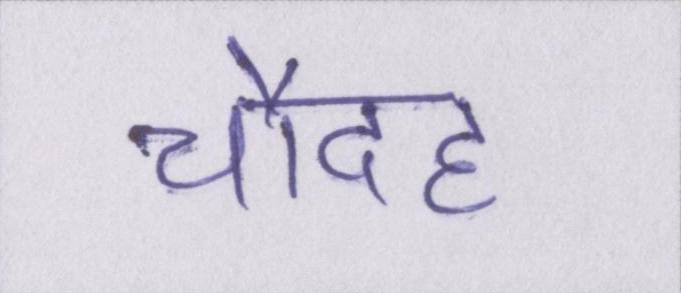 चौदह